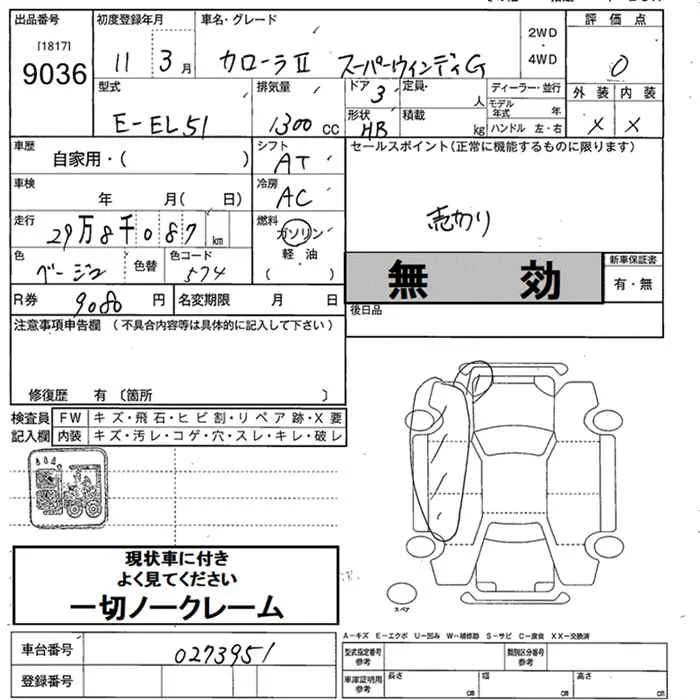 出品番号 初度登録年月 車名・グレード 評価点
[1817]
9036 11 3月 カローラⅡ スーパーウィンディG 2WD・4WD 0
型式 排気量 ドア 3 定員 人 ディーラー・並行 外装 内装
E-EL51 1300 cc 形状 HB 積載 kg モデル年式 年 ハンドル 左・右 X X
車歴 自家用・( ) シフト AT セールスポイント(正常に機能するものに限ります)
車検 年 月( 日) 冷房 AC
売切り
走行 29万8千087 km 燃料 ガソリン
軽油
( )
色 ベージュ 色替 色コード 574
無効 新車保証書
有・無
R券 9080 円 名変期限 月 日
後日品
注意事項申告欄 (不具合内容等は具体的に記入して下さい)
修復歴 有〔箇所 〕
検査員 FW キズ・飛石・ヒビ割・リペア跡・X要
記入欄 内装 キズ・汚レ・コゲ・穴・スレ・キレ・破レ
現状車に付き
よく見てください
一切ノークレーム
スペア
A-キズ E-エクボ U-凹み W-補修跡 S-サビ C-腐食 XX-交換済
車台番号 0273951
型式指定番号 参考 類別区分番号 参考
登録番号
車庫証明用 参考 長さ cm 幅 cm 高さ cm